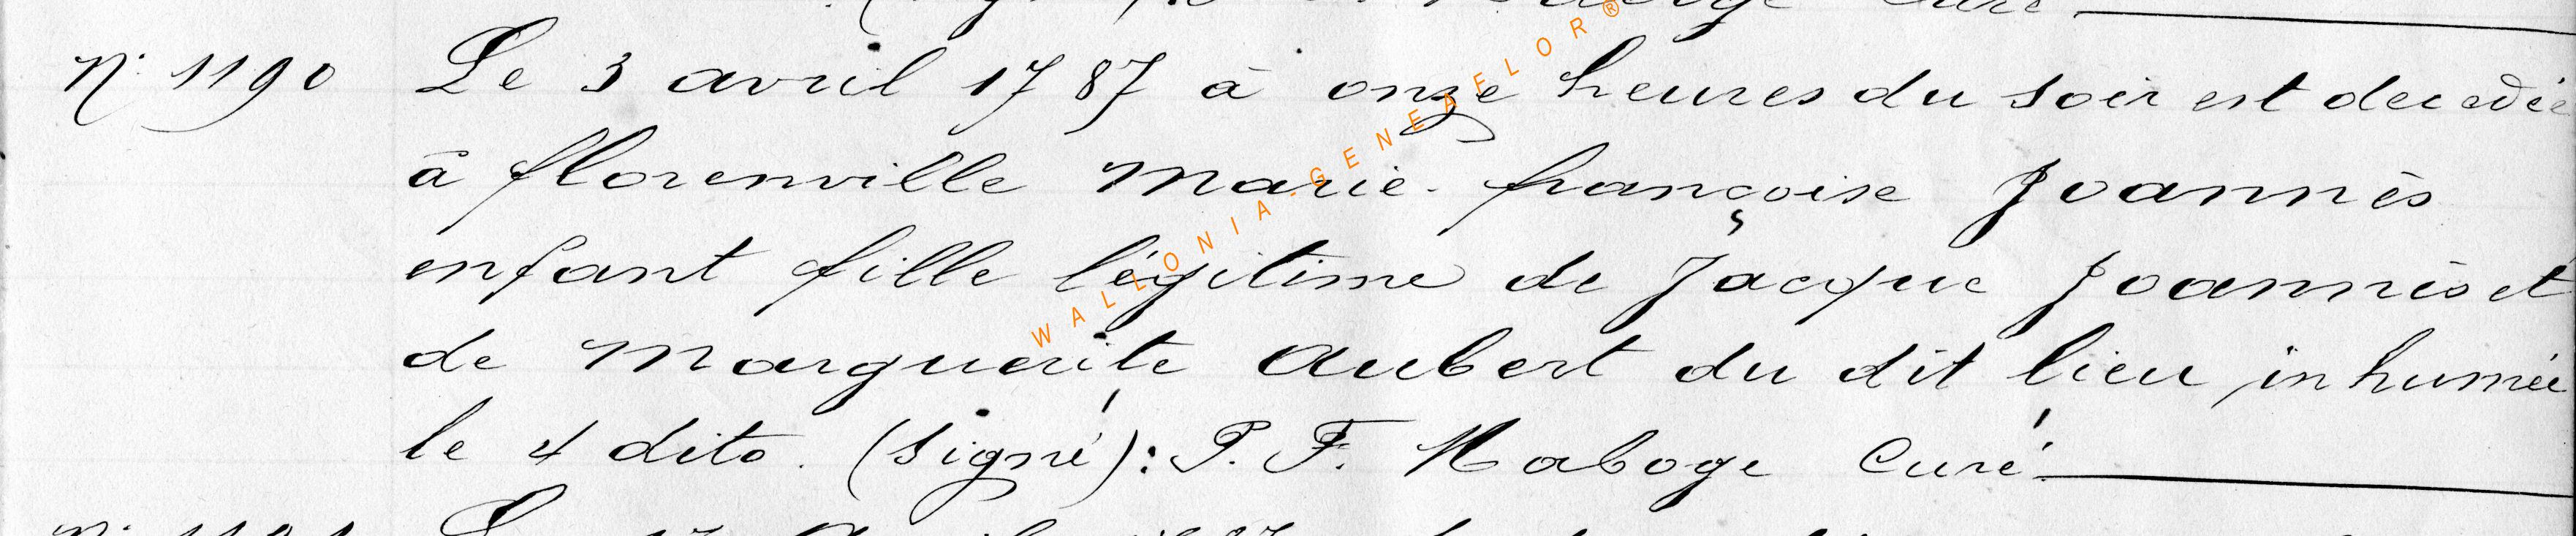 N° 1190 Le 3 avril 1787 à onze heures du soir est decedée
à florenville Marie-françoise Joannès
enfant fille légitime de Jacque Joannès et
de Marguerite Aubert du dit lieu, inhumée
le 4 dito. (Signé): P. F. Maboge Curé.
WALLONIA-GENEAFLOR®